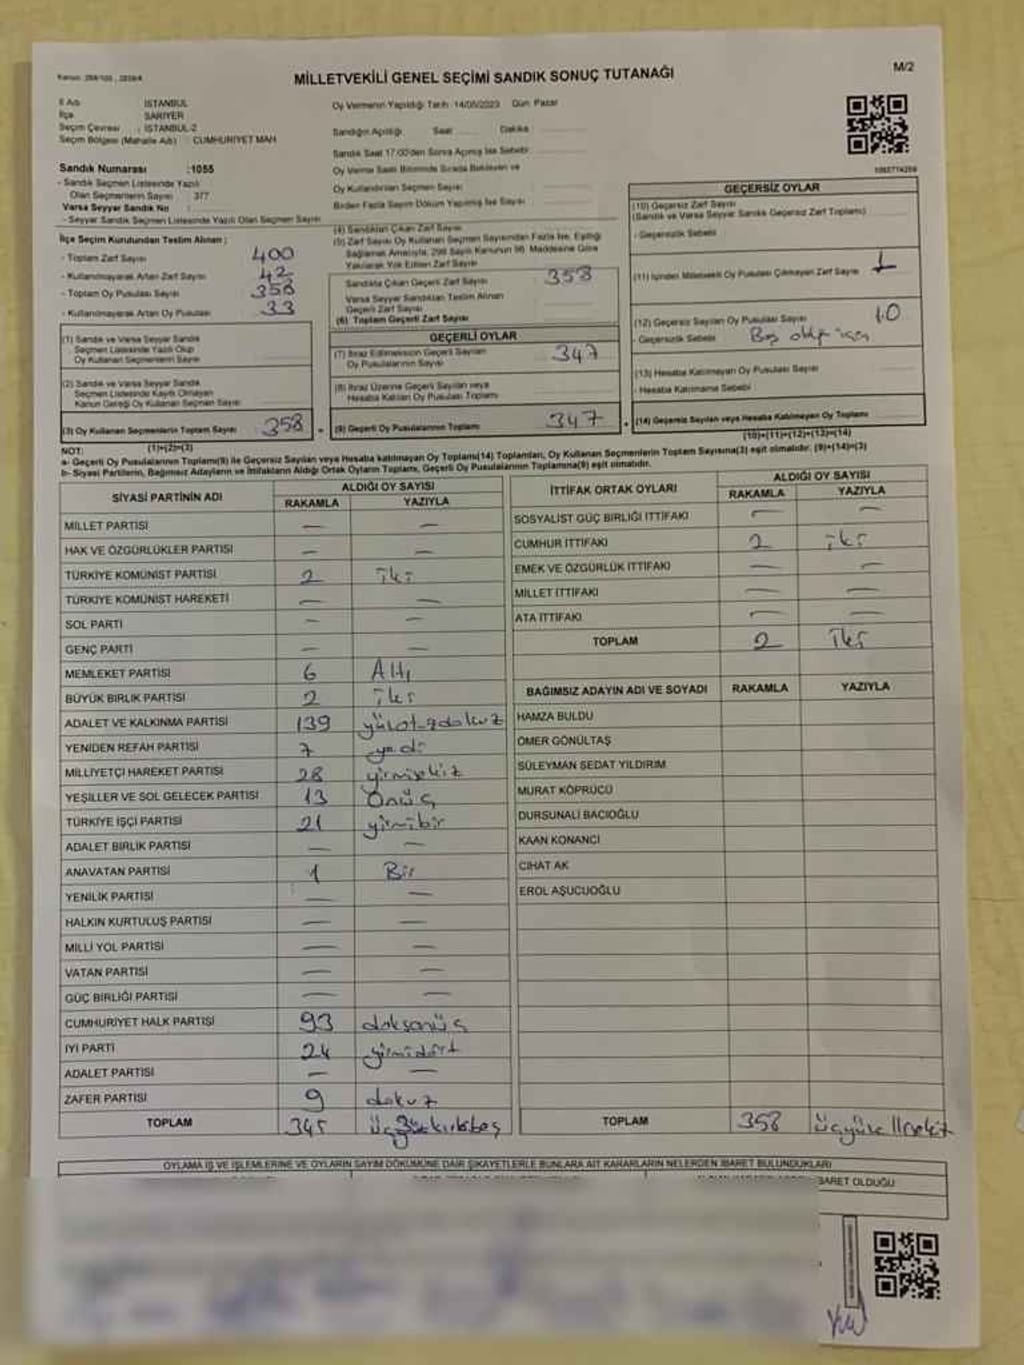 MİLLETVEKİLİ GENEL SEÇİMİ SANDIK SONUÇ TUTANAĞI
M/2
İl Adı : İSTANBUL
İlçe : SARIYER
Seçim Çevresi : İSTANBUL-2
Seçim Bölgesi (Mahalle Adı) : CUMHURİYET MAH
Sandık Numarası :1055
- Sandık Seçmen Listesinde Yazılı
Olan Seçmenlerin Sayısı : 377
Varsa Seyyar Sandık No :
- Seyyar Sandık Seçmen Listesinde Yazılı Olan Seçmen Sayısı
İlçe Seçim Kurulundan Teslim Alınan ;
- Toplam Zarf Sayısı 400
- Kullanılmayarak Artan Zarf Sayısı 42
- Toplam Oy Pusulası Sayısı 358
- Kullanılmayarak Artan Oy Pusulası 33
(1) Sandık ve Varsa Seyyar Sandık
Seçmen Listesinde Yazılı Olup
Oy Kullanan Seçmenlerin Sayısı
(2) Sandık ve Varsa Seyyar Sandık
Seçmen Listesinde Kayıtlı Olmayan
Kanun Gereği Oy Kullanan Seçmen Sayısı
(3) Oy Kullanan Seçmenlerin Toplam Sayısı 358
(1)+(2)=(3)
Oy Vermenin Yapıldığı Tarih 14/05/2023 Gün Pazar
Sandığın Açıldığı Saat Dakika
Sandık Saat 17:00'den Sonra Açılmış İse Sebebi
Oy Verme Saati Bitiminde Sırada Bekleyen ve
Oy Kullandırılan Seçmen Sayısı
Birden Fazla Sayım Döküm Yapılmış İse Sayısı
(4) Sandıktan Çıkan Zarf Sayısı
(5) Zarf Sayısı Oy Kullanan Seçmen Sayısından Fazla İse, Eşitliği
Sağlamak Amacıyla, 298 Sayılı Kanunun 98. Maddesine Göre
Yakılarak Yok Edilen Zarf Sayısı
Sandıkta Çıkan Geçerli Zarf Sayısı 358
Varsa Seyyar Sandıktan Teslim Alınan
Geçerli Zarf Sayısı
(6) Toplam Geçerli Zarf Sayısı
GEÇERLİ OYLAR
(7) İtiraz Edilmeksizin Geçerli Sayılan
Oy Pusulalarının Sayısı 347
(8) İtiraz Üzerine Geçerli Sayılan veya
Hesaba Katılan Oy Pusulası Toplamı
(9) Geçerli Oy Pusulalarının Toplamı 347
GEÇERSİZ OYLAR
(10) Geçersiz Zarf Sayısı
(Sandık ve Varsa Seyyar Sandık Geçersiz Zarf Toplamı)
- Geçersizlik Sebebi
(11) İçinden Milletvekili Oy Pusulası Çıkmayan Zarf Sayısı 1
(12) Geçersiz Sayılan Oy Pusulası Sayısı 10
- Geçersizlik Sebebi Boş olduğu için
(13) Hesaba Katılmayan Oy Pusulası Sayısı
- Hesaba Katılmama Sebebi
(14) Geçersiz Sayılan veya Hesaba Katılmayan Oy Toplamı
(10)+(11)+(12)+(13)=(14)
NOT:
a- Geçerli Oy Pusulalarının Toplamı(9) ile Geçersiz Sayılan veya Hesaba katılmayan Oy Toplamı(14) Toplamları, Oy Kullanan Seçmenlerin Toplam Sayısına(3) eşit olmalıdır. (9)+(14)=(3)
b- Siyasi Partilerin, Bağımsız Adayların ve İttifakların Aldığı Ortak Oyların Toplamı, Geçerli Oy Pusulalarının Toplamına(9) eşit olmalıdır.
SİYASİ PARTİNİN ADI ALDIĞI OY SAYISI
RAKAMLA YAZIYLA
MİLLET PARTİSİ — —
HAK VE ÖZGÜRLÜKLER PARTİSİ — —
TÜRKİYE KOMÜNİST PARTİSİ 2 iki
TÜRKİYE KOMÜNİST HAREKETİ — —
SOL PARTİ — —
GENÇ PARTİ — —
MEMLEKET PARTİSİ 6 Altı
BÜYÜK BİRLİK PARTİSİ 2 iki
ADALET VE KALKINMA PARTİSİ 139 yüzotuzdokuz
YENİDEN REFAH PARTİSİ 7 yedi
MİLLİYETÇİ HAREKET PARTİSİ 28 yirmisekiz
YEŞİLLER VE SOL GELECEK PARTİSİ 13 Onüç
TÜRKİYE İŞÇİ PARTİSİ 21 yirmibir
ADALET BİRLİK PARTİSİ — —
ANAVATAN PARTİSİ 1 Bir
YENİLİK PARTİSİ — —
HALKIN KURTULUŞ PARTİSİ — —
MİLLİ YOL PARTİSİ — —
VATAN PARTİSİ — —
GÜÇ BİRLİĞİ PARTİSİ — —
CUMHURİYET HALK PARTİSİ 93 doksanüç
İYİ PARTİ 24 yirmidört
ADALET PARTİSİ — —
ZAFER PARTİSİ 9 dokuz
TOPLAM 345 üçyüzkırkbeş
İTTİFAK ORTAK OYLARI ALDIĞI OY SAYISI
RAKAMLA YAZIYLA
SOSYALİST GÜÇ BİRLİĞİ İTTİFAKI — —
CUMHUR İTTİFAKI 2 iki
EMEK VE ÖZGÜRLÜK İTTİFAKI — —
MİLLET İTTİFAKI — —
ATA İTTİFAKI — —
TOPLAM 2 İki
BAĞIMSIZ ADAYIN ADI VE SOYADI RAKAMLA YAZIYLA
HAMZA BULDU
ÖMER GÖNÜLTAŞ
SÜLEYMAN SEDAT YILDIRIM
MURAT KÖPRÜCÜ
DURSUNALİ BACIOĞLU
KAAN KONANCI
CİHAT AK
EROL AŞUCUOĞLU
TOPLAM 358
OYLAMA İŞ VE İŞLEMLERİNE VE OYLARIN SAYIM DÖKÜMÜNE DAİR ŞİKAYETLERLE BUNLARA AİT KARARLARIN NELERDEN İBARET BULUNDUKLARI
BARET OLDUĞU